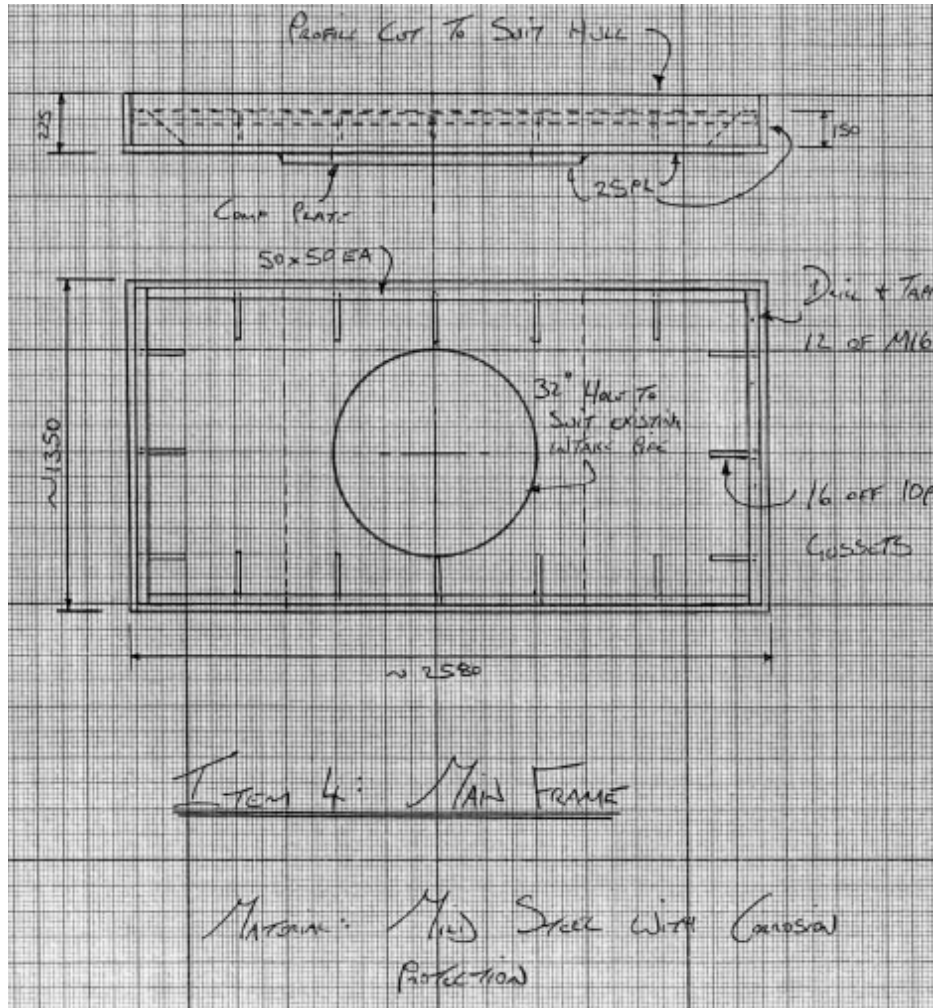 PROFILE CUT TO SUIT HULL
225
150
25PL
COMP PLATE
50x50 EA
DRILL + TAP
12 OF M16
32" HOLE TO
SUIT EXISTING
INTAKE PIPE
~1350
16 OFF 10P
GUSSETS
~2580
ITEM 4: MAIN FRAME
MATERIAL: MILD STEEL WITH CORROSION
PROTECTION